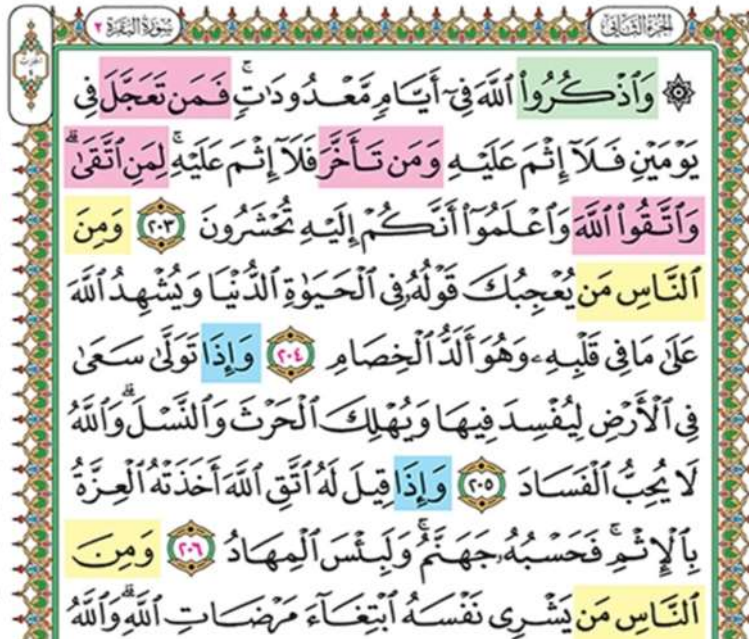 سُورَةُ البَقَرَةِ ٢
الجُزْءُ الثَّانِي
۞ وَٱذْكُرُوا۟ ٱللَّهَ فِىٓ أَيَّامٍ مَّعْدُودَٰتٍۢ ۚ فَمَن تَعَجَّلَ فِى
يَوْمَيْنِ فَلَآ إِثْمَ عَلَيْهِ وَمَن تَأَخَّرَ فَلَآ إِثْمَ عَلَيْهِ ۚ لِمَنِ ٱتَّقَىٰ ۗ
وَٱتَّقُوا۟ ٱللَّهَ وَٱعْلَمُوٓا۟ أَنَّكُمْ إِلَيْهِ تُحْشَرُونَ ٢٠٣ وَمِنَ
ٱلنَّاسِ مَن يُعْجِبُكَ قَوْلُهُۥ فِى ٱلْحَيَوٰةِ ٱلدُّنْيَا وَيُشْهِدُ ٱللَّهَ
عَلَىٰ مَا فِى قَلْبِهِۦ وَهُوَ أَلَدُّ ٱلْخِصَامِ ٢٠٤ وَإِذَا تَوَلَّىٰ سَعَىٰ
فِى ٱلْأَرْضِ لِيُفْسِدَ فِيهَا وَيُهْلِكَ ٱلْحَرْثَ وَٱلنَّسْلَ ۗ وَٱللَّهُ
لَا يُحِبُّ ٱلْفَسَادَ ٢٠٥ وَإِذَا قِيلَ لَهُ ٱتَّقِ ٱللَّهَ أَخَذَتْهُ ٱلْعِزَّةُ
بِٱلْإِثْمِ ۚ فَحَسْبُهُۥ جَهَنَّمُ ۚ وَلَبِئْسَ ٱلْمِهَادُ ٢٠٦ وَمِنَ
ٱلنَّاسِ مَن يَشْرِى نَفْسَهُ ٱبْتِغَآءَ مَرْضَاتِ ٱللَّهِ ۗ وَٱللَّهُ